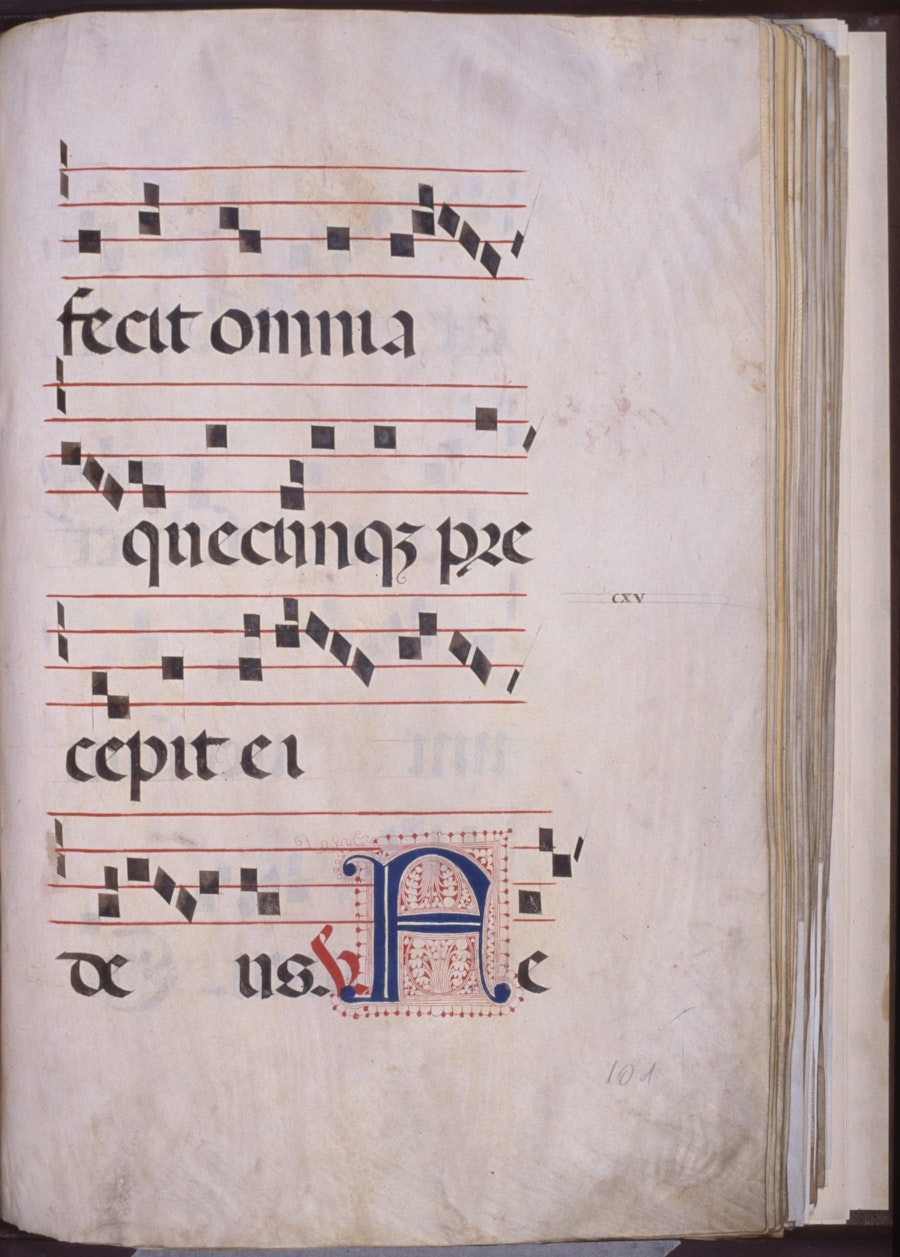 fecit omnia
quecunqȝ pre
CXV
cepit ei
de us. V Ae
101